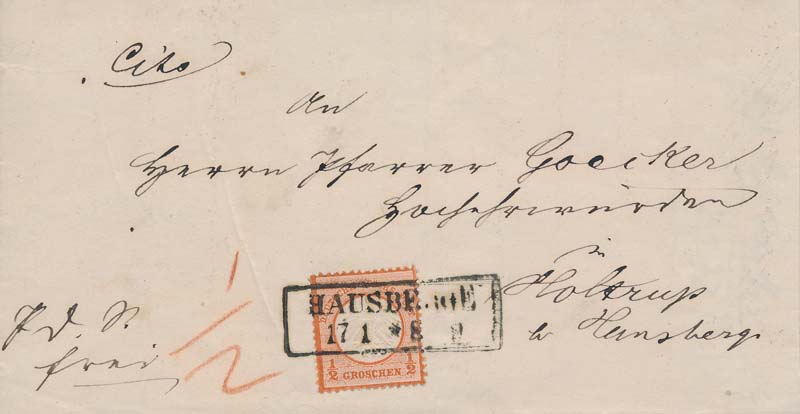 Cito
An
Herrn Pfarrer Goecker
Hochehrwürden
in
Holtrup
b Hausberge
P. d. S.
frei
1/2
HAUSBERGE
17 1 * 8 9
1/2 GROSCHEN 1/2